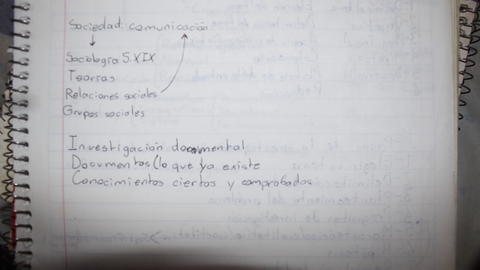 Sociedad comunicación
Sociología S. XIX
Teorías
Relaciones sociales
Grupos sociales
Investigación documental
Documentos (lo que ya existe
Conocimientos ciertos y comprobados